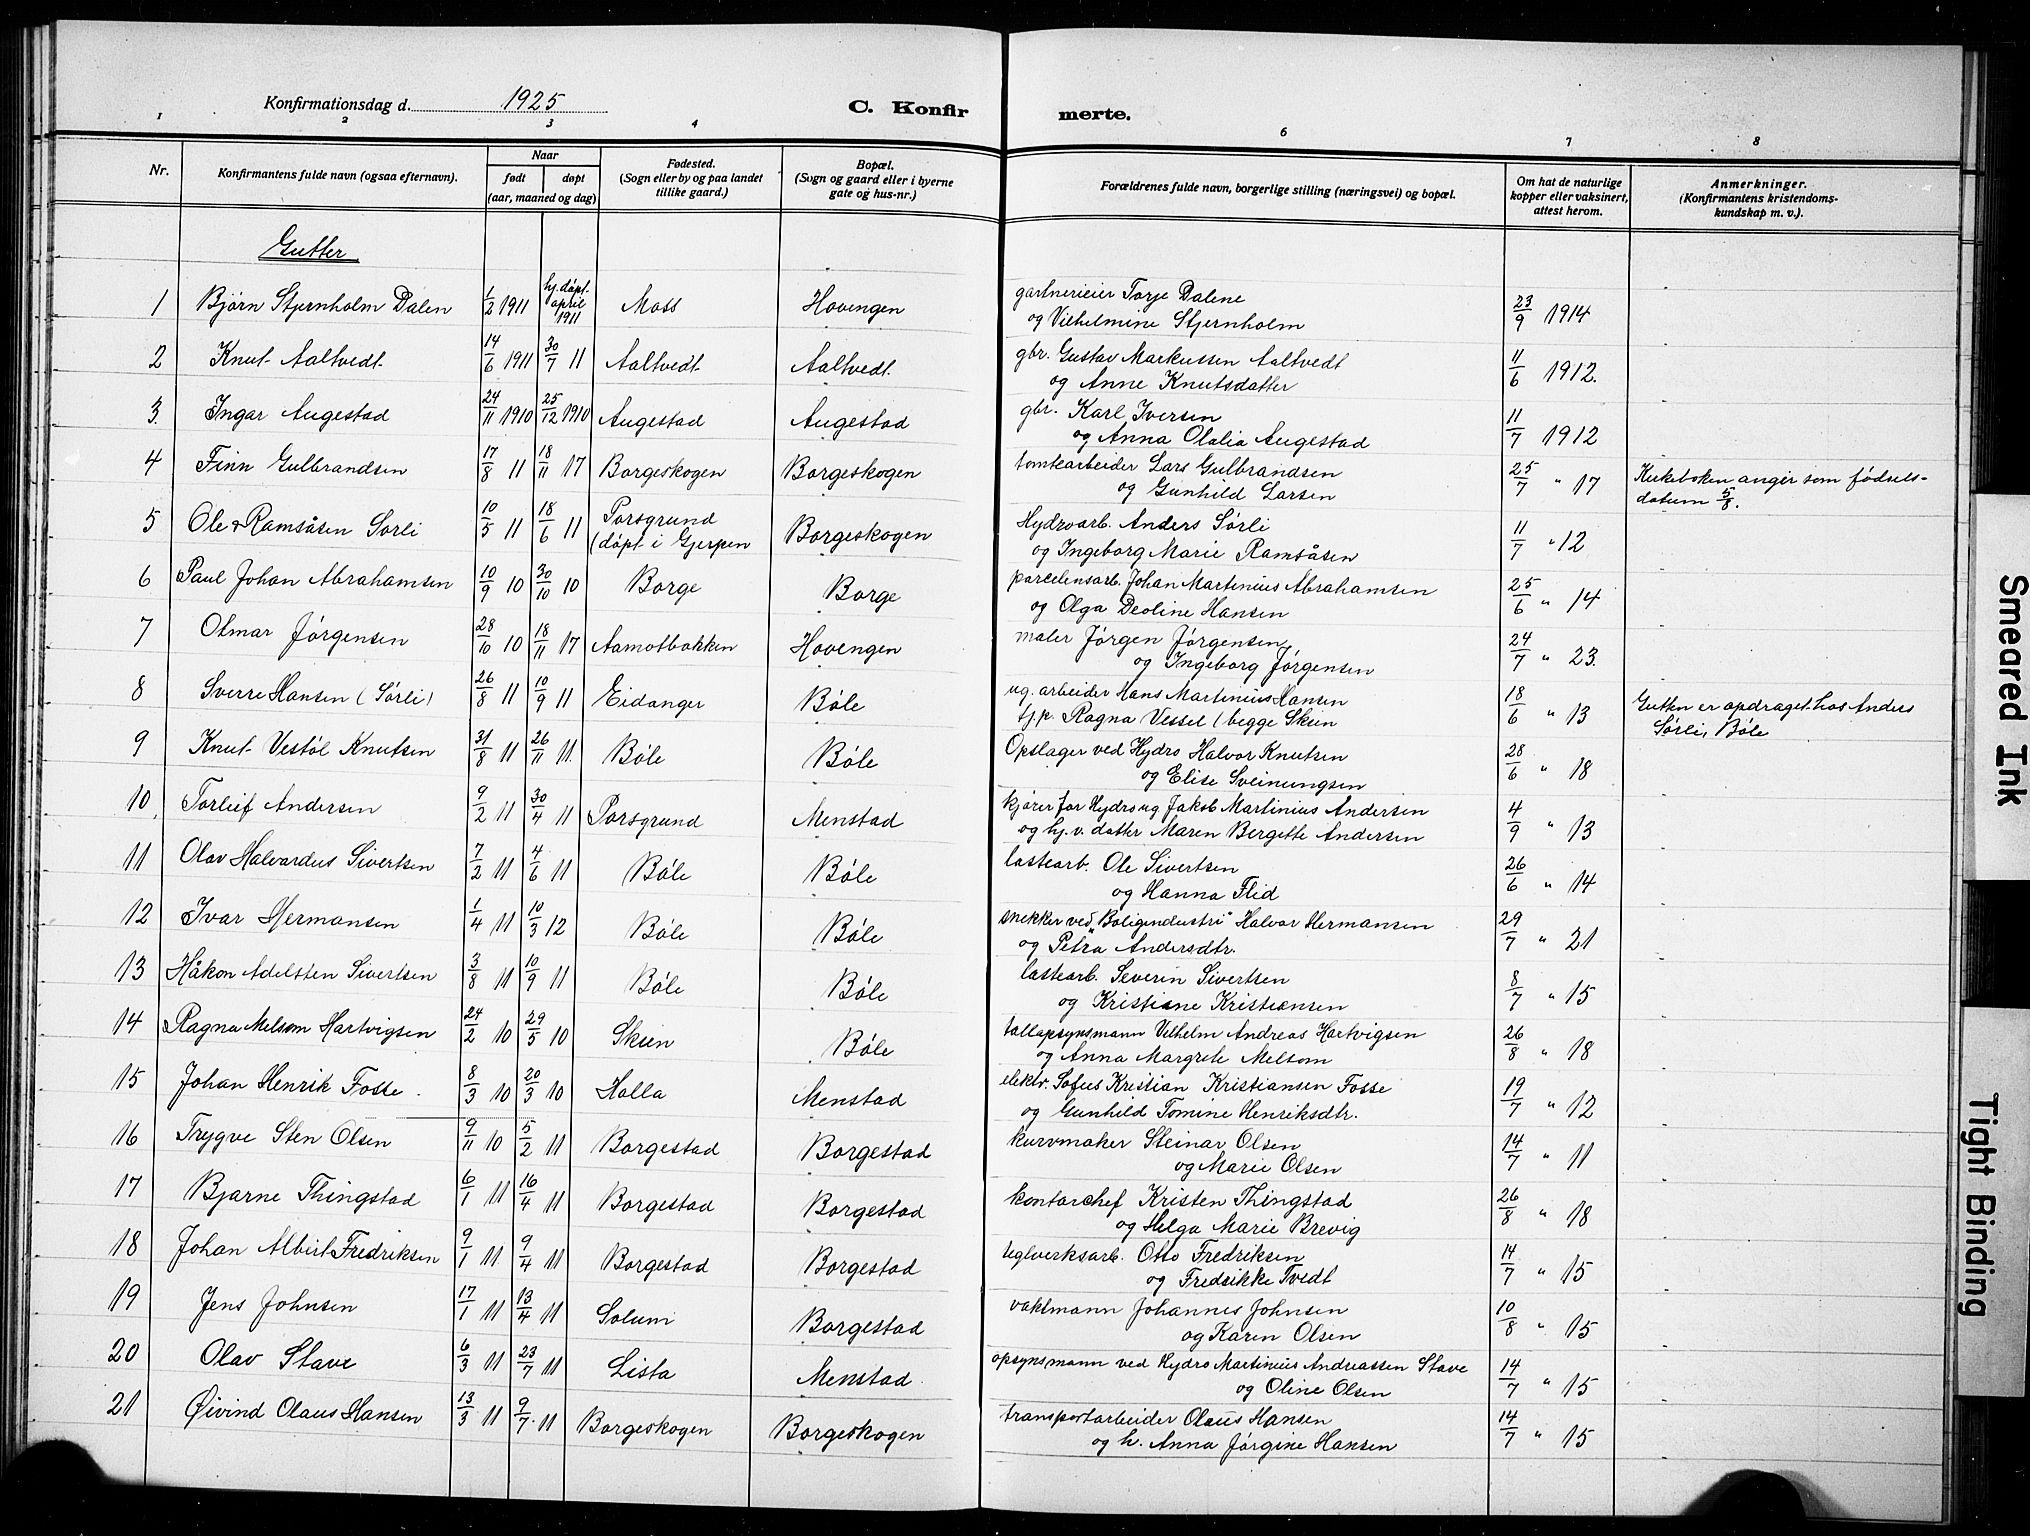 Konfirmationsdag d. 1925
C. Konfir
merte.
1 2 3 4 6 7 8
Nr.
Konfirmantens fulde navn (ogsaa efternavn).
Naar
født
døpt
(aar, maaned og dag)
Fødested.
(Sogn eller by og paa landet
tillike gaard.)
Bopæl.
(Sogn og gaard eller i byerne
gate og hus-nr.)
Forældrenes fulde navn, borgerlige stilling (næringsvei) og bopæl.
Om hat de naturlige
kopper eller vaksinert,
attest herom.
Anmerkninger.
(Konfirmantens kristendoms-
kundskap m. v.).
Gutter
1 Bjørn Stjernholm Dalen 1/2 1911 hj. døpt april 1911 Moss Hovengen gartnerieier Torje Dalene 23/9 1914
og Vilhelmine Stjernholm
2 Knut Aaltvedt 14/6 1911 30/7 11 Aaltvedt Aaltvedt gbr. Gustav Markussen Aaltvedt 11/6 1912.
og Anne Knutsdatter
3. Ingar Augestad 24/11 1910 25/12 1910 Augestad Augestad gbr. Karl Iversen 11/7 1912
og Anna Olalia Augestad
4 Finn Gulbrandsen 17/8 11 18/11 17 Borgeskogen Borgeskogen tomtearbeider Lars Gulbrandsen 25/7 " 17 Kirkeboken angir som fødsels-
og Gunhild Larsen datum 5/8.
5 Ole Ramsåsen Sørli 10/5 11 18/6 11 Porsgrund Borgeskogen Hydroarb. Anders Sørli 11/7 " 12
(døpt i Gjerpen og Ingeborg Marie Ramsåsen
6 Paul Johan Abrahamsen 10/9 10 30/10 10 Borge Borge porcelensarb. Johan Martinius Abrahamsen 25/6 " 14
og Olga Deoline Hansen
7 Otmar Jørgensen 28/10 10 18/11 17 Aamotbakken Hovengen maler Jørgen Jørgensen 24/7 " 23.
og Ingeborg Jørgensen
8 Sverre Hansen (Sørli) 26/8 11 10/9 11 Eidanger Bøle ug. arbeider Hans Martinius Hansen 18/6 " 13 Gutten er opdraget hos Anders
tj.p. Ragna Vessel (begge Skien Sørli, Bøle
9 Knut Vestøl Knutsen 31/8 11 26/11 11. Bøle Bøle Opslager ved Hydro Halvor Knutsen 28/6 " 18
og Elise Sveinungsen
10 Torleif Andersen 9/2 11 30/4 11 Porsgrund Menstad kjører for Hydro ug Jakob Martinius Andersen 4/9 " 13
og hj.v. datter Maren Bergette Andersen
11 Olav Halvardus Sivertsen 7/2 11 4/6 11 Bøle Bøle lastearb. Ole Sivertsen 26/6 " 14
og Hanna Flid
12 Ivar Hermansen 1/4 11 10/3 12 Bøle Bøle snekker ved "Boligindustri" Halvor Hermansen 29/7 " 21
og Petra Andersdtr.
13 Håkon Adelsten Sivertsen 3/8 11 10/9 11 Bøle Bøle lastearb. Severin Sivertsen 8/7 " 15
og Kristiane Kristiansen
14 Ragna Melsom Hartvigsen 24/2 10 29/5 10 Skien Bøle tallopsynsmann Vilhelm Andreas Hartvigsen 26/8 " 18
og Anna Margrete Melsom
15 Johan Henrik Fosse. 8/3 10 20/3 10 Holla Menstad elektr. Sofus Kristian Kristiansen Fosse 19/7 " 12
og Gunhild Tomine Henriksdtr.
16 Trygve Sten Olsen 9/11 10 5/2 11 Borgestad Borgestad kurvmaker Steinar Olsen 14/7 " 11
og Marie Olsen
17 Bjarne Thingstad 6/1 11 16/4 11 Borgestad Borgestad kontorchef Kristen Thingstad 26/8 " 18
og Helga Marie Brevig
18 Johan Albert Fredriksen 9/1 11 9/4 11 Borgestad Borgestad teglverksarb. Otto Fredriksen 14/7 " 15
og Fredrikke Tvedt
19 Jens Johnsen 17/1 11 13/4 11 Solum Borgestad vaktmann Johannes Johnsen 10/8 " 15
og Karen Olsen
20 Olav Stave 6/3 11 23/7 11 Lista Menstad opsynsmann ved Hydro Martinius Andreassen Stave 14/7 " 15
og Oline Olsen
21 Øivind Olaus Hansen 13/3 11 9/7 11 Borgeskogen Borgeskogen transportarbeider Olaus Hansen 14/7 " 15
og h. Anna Jørgine Hansen
Smeared Ink
Tight Binding